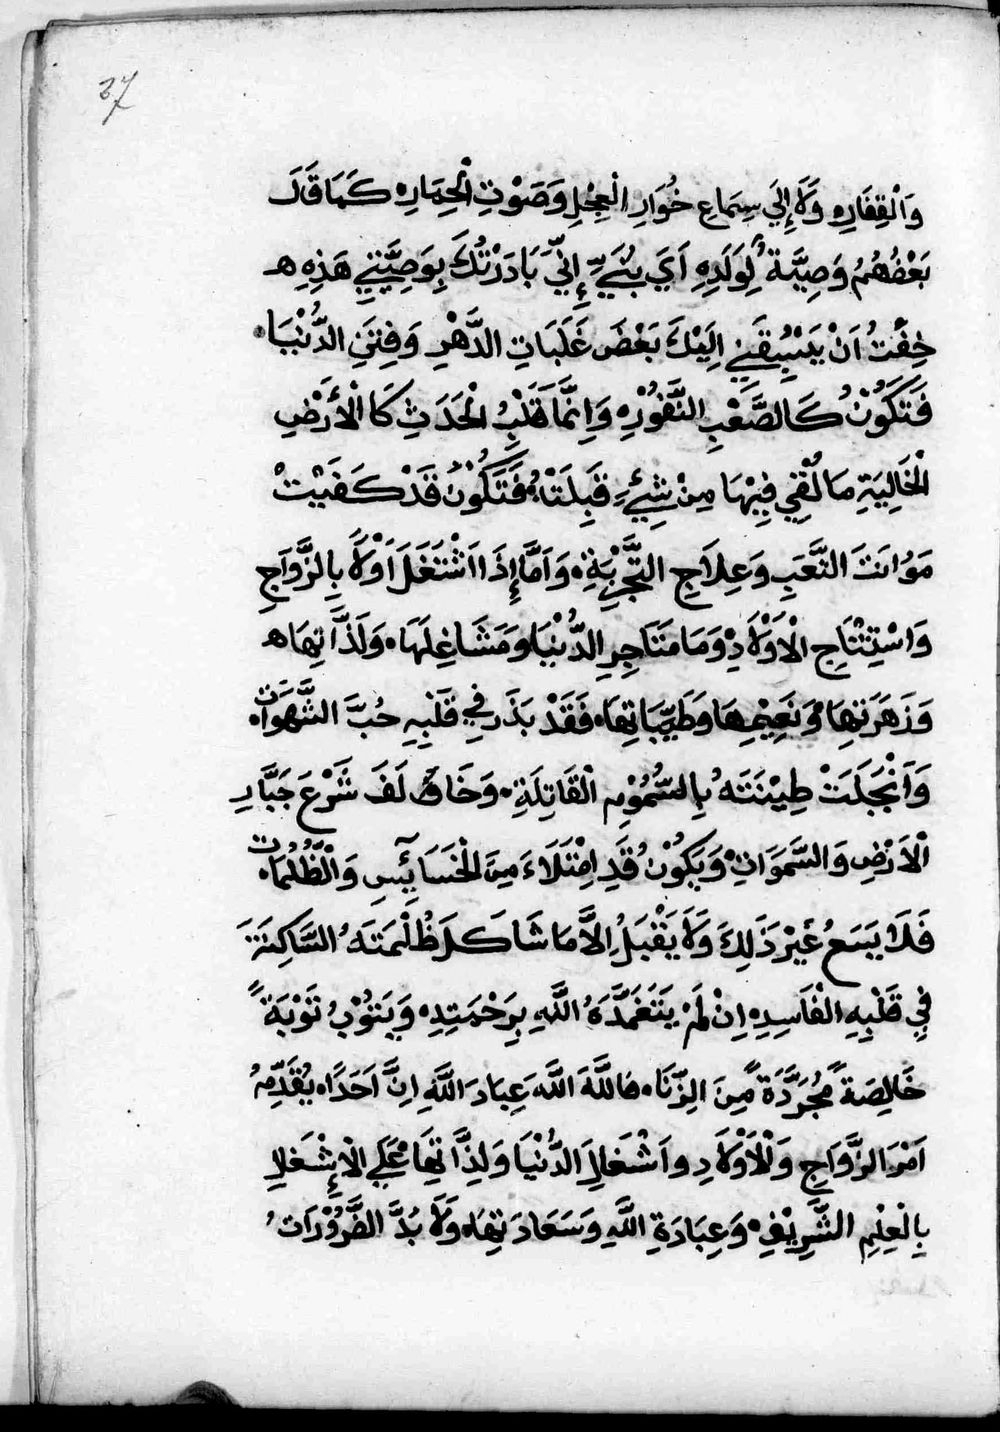 37
وَالْقِفَارِه وَلَا إِلَي سِمَاعِ خُوَارِ الْعِجْلِ وَصَوْتِ الْحِمَارِه كَمَا قَالَ
بَعْضُهُمُ وَصِيَّةً لِوَلَدِهِ اَيَ بُنَيِّ إِنِّي بَادَرْتُكَ بِوَصِيَّتِي هَذِهِ ه
خِفْتُ اَنْ يَسْبِقَنِي اِلَيْكَ بَعْضَ غَلَبَاتِ الدَّهْرِ وَفِتَنِ الدُّنْيَا
فَتَكُونُ كَالصَّعْبِ النَّفُوْرِه وَاِنَّمَا قَلْبُ الْحَدَثِ كَا الْأَرْضِ
الْخَالِيَةِ مَا لُقِي فِيْهَا مِنْ شِيْئٍ قَبِلَتْهُ فَتَكُونُ قَدْ كَفَيْتْ
مَوُانَتَ التَّعَبِ وَعِلَاجِ التَّجْرِبَةِ وَاَمَّا إِذَا اشْتَغَلَ اَوْلًا بِالزَّوَاجِ
وَاسْتِنْتَاجِ الْاَوْلَادِ وَمَا مَتَاجِرِ الدُّنْيَا وَمَشَاغِلَهَا وَلَذَّاتِهَا ه
وَزَهَرَتِهَا وَنَعِيْمِهَا وَطَيِّبَاتِهَا فَقَدْ بَذَرَ فِي قَلْبِهِ حُبَّ الشَّهَوَات
وَاَنْجَبَلَتْ طِيْنَتَهُ بِالسُّمُوْمِ الْقَاتِلَةِ وَخَالَفَ شَرْعَ جَبَّارِ
الْاَرْضِ وَالسَّمَوَاتِ وَيَكُوْنُ قَدِ امْتَلَاءَ مِنَ الْخَسَائِسِ وَالظُّلُمَات
فَلَا يَسَعُ غَيْرَ ذَلِكَ وَلَا يَقْبَلُ اِلَّا مَا شَاكَلَ ظُلْمَتَهُ السَّاكِنَةَ
فِي قَلْبِهِ الْفَاسِدِه اِنْ لَمْ يَتَغَمَّدَهُ اللَّهِ بِرَحْمَتِهِ وَيَتُوْبُ تَوْبَةً
خَالِصَةً مُجَرَّدَةً مِنَ الزِّنَا فَاللَّهَ اللَّهَ عِبَادَ اللَّهِ اِنَّ اَحَدًا يُقَدِّمُ
اَمْرَ الزَّوَاجِ وَالْاَوْلَادِ وَاَشْغَالَ الدُّنْيَا وَلِذَّاتِهَا عَلَي الْاِشْغَالِ
بِالْعِلْمِ الشَّرِيْفِ وَعِبَادَةِ اللَّهِ وَسَعَادَتِهَا وَلَا بُدَّ الضَّرُوْرَاتُ